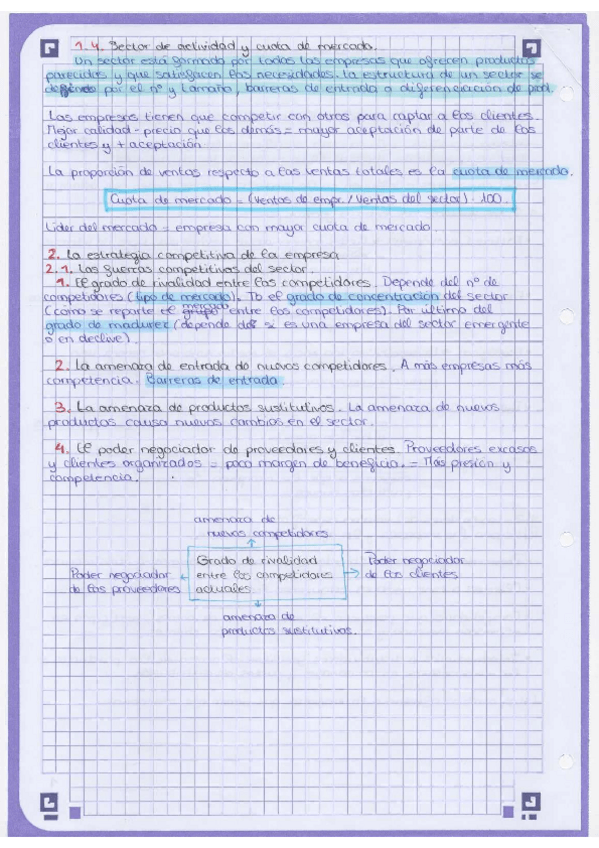 1.4. Sector de actividad y cuota de mercado.
Un sector está formado por todas las empresas que ofrecen productos
parecidos y que satisfacen las necesidades. La estructura de un sector se
define por el nº y tamaño, barreras de entrada o diferenciación de prod.
Las empresas tienen que competir con otros para captar a los clientes.
Mejor calidad-precio que los demás = mayor aceptación de parte de los
clientes y + aceptación.
La proporción de ventas respecto a las ventas totales es la cuota de mercado.
Cuota de mercado = (Ventas de empr. / Ventas del sector) · 100
Líder del mercado = empresa con mayor cuota de mercado.
2. La estrategia competitiva de la empresa
2.1. Las guerras competitivas del sector.
1. El grado de rivalidad entre los competidores. Depende del nº de
competidores (tipo de mercado). Tb el grado de concentración del sector
(cómo se reparte el mercado entre los competidores). Por último del
grado de madurez (depende de si es una empresa del sector emergente
o en declive).
2. La amenaza de entrada de nuevos competidores. A más empresas más
competencia. Barreras de entrada.
3. La amenaza de productos sustitutivos. La amenaza de nuevos
productos causa nuevos cambios en el sector.
4. El poder negociador de proveedores y clientes. Proveedores escasos
y clientes organizados = poco margen de beneficio. = Más presión y
competencia.
amenaza de
nuevos competidores
Grado de rivalidad
entre los competidores
actuales.
Poder negociador
de los proveedores
Poder negociador
de los clientes
amenaza de
productos sustitutivos.